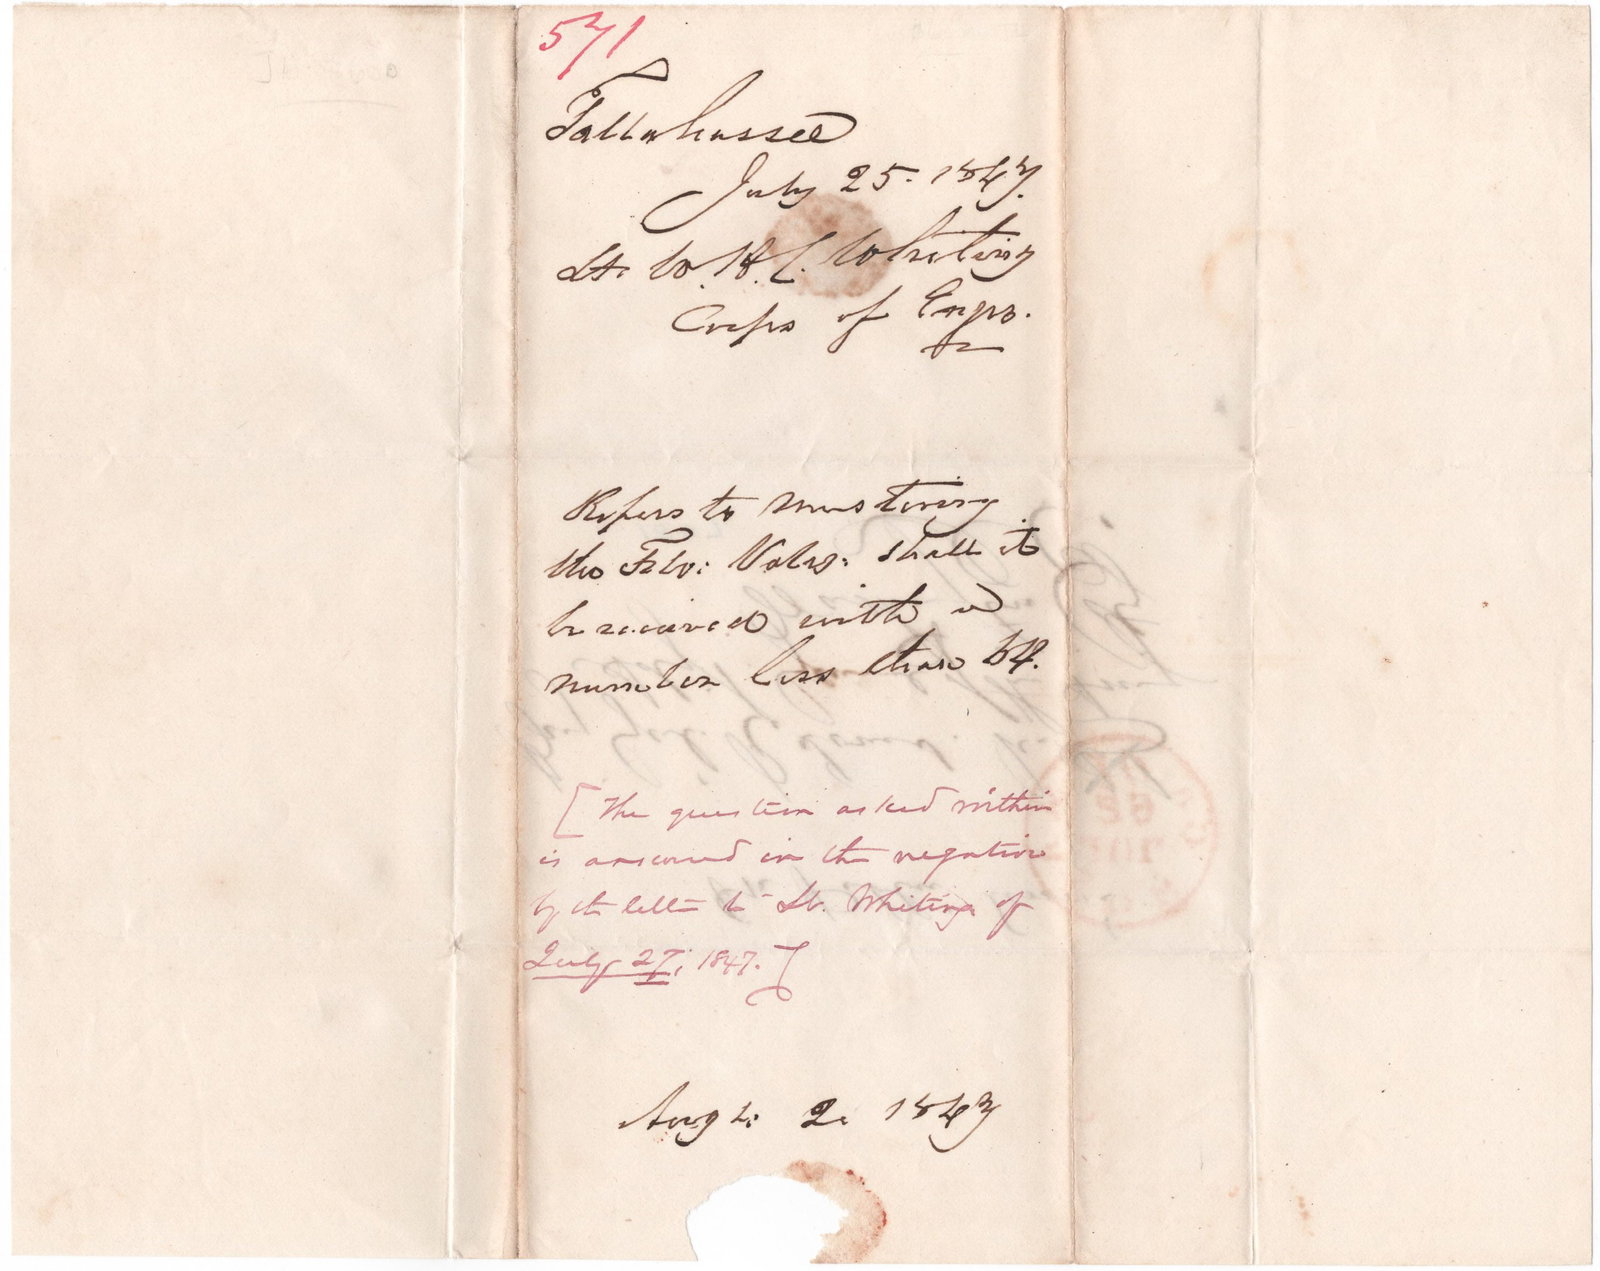 571
Tallahassee
July 25. 1847.
Lt. W. H. C. Whiting
Corps of Engrs.
Refers to mustering
the Flo: Vols: shall it
be received with a
number less than 64.
[The question asked within
is answered in the negative
by the letter to Lt. Whiting of
July 27, 1847.]
Augt: 2. 1847